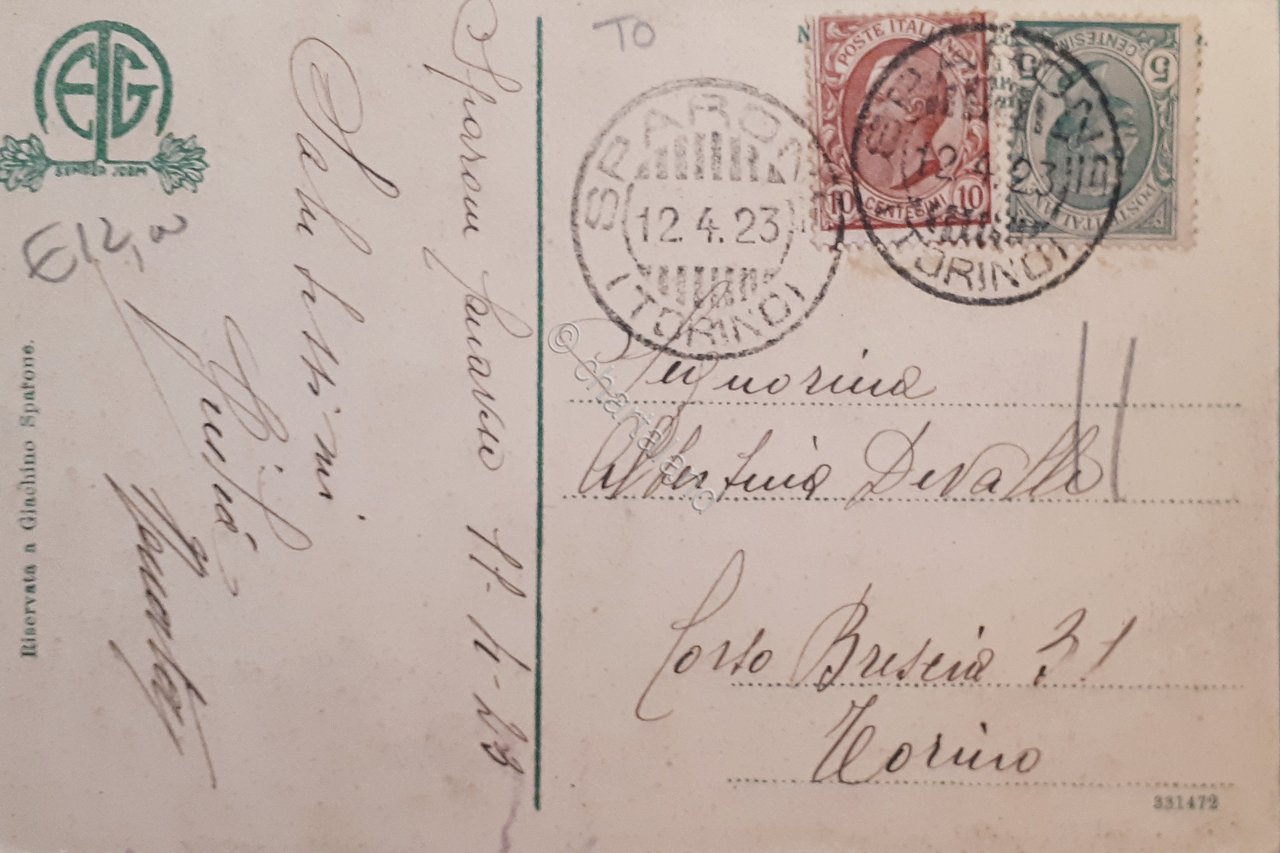 EIG
SEMPER IDEM
E12,00
Riservata a Giachino Sparone.
Sparone Canavese 11-4-23
Saluti
TO
SPARONE
12.4.23
(TORINO)
POSTE ITALIANE
10 CENTESIMI 10
POSTE ITALIANE
5 CENTESIMI 5
SPARONE
12.4.23
(TORINO)
© chartaland
Signorina
Albertina Devalle
Corso Brescia 31
Torino
331472